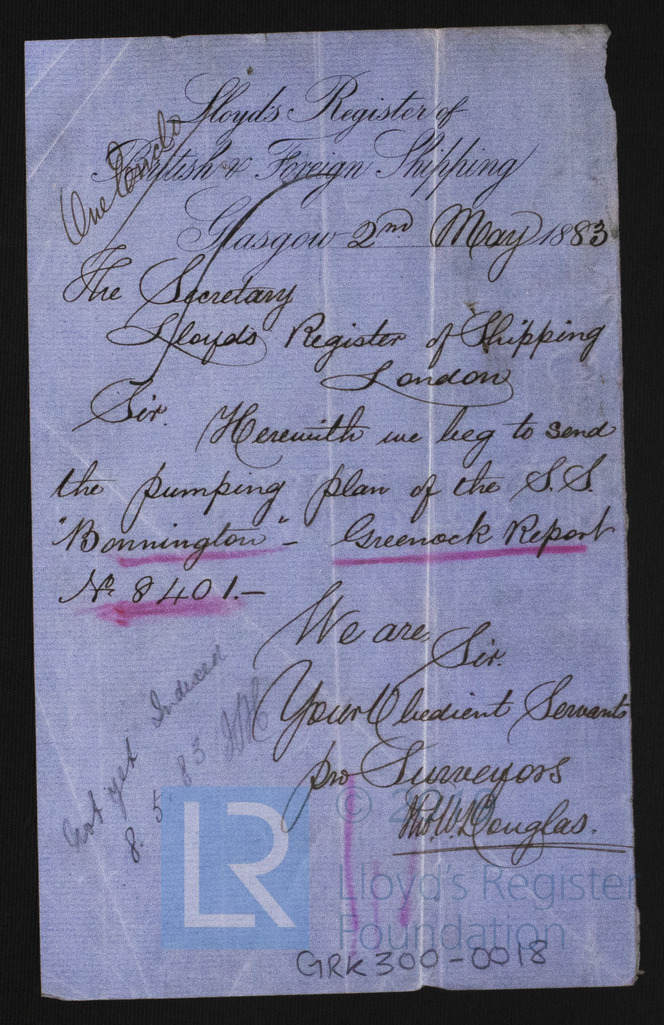 One Enclo
Lloyd's Register of
British & Foreign Shipping
Glasgow 2nd May 1883
The Secretary
Lloyds Register of Shipping
London
Sir. Herewith we beg to send
the pumping plan of the S.S.
"Bonnington" - Greenock Report
No. 8401.-
We are, Sir.
Your Obedient Servants
pro Surveyors
Tho. W. Douglas.
Not yet Indexed
8.5.83
LR
© 20
Lloyd's Register
Foundation
GRK300-0018